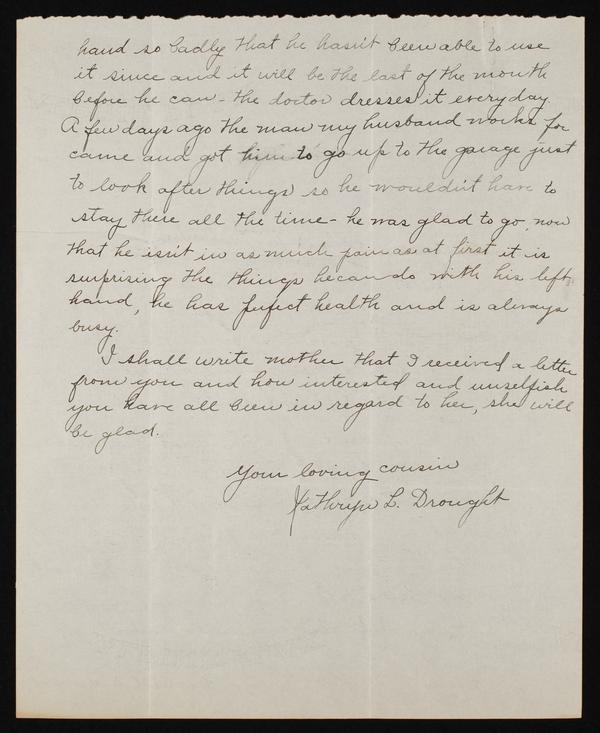 hand so badly that he hasn't been able to use
it since and it will be the last of the month
before he can - the doctor dresses it every day.
A few days ago the man my husband works for
came and got him to go up to the garage just
to look after things so he wouldn't have to
stay there all the time - he was glad to go, now
that he isn't in as much pain as at first it is
surprising the things he can do with his left
hand, he has perfect health and is always
busy.
I shall write mother that I received a letter
from you and how interested and unselfish
you have all been in regard to her, she will
be glad.
Your loving cousin
Kathryn L. Drought